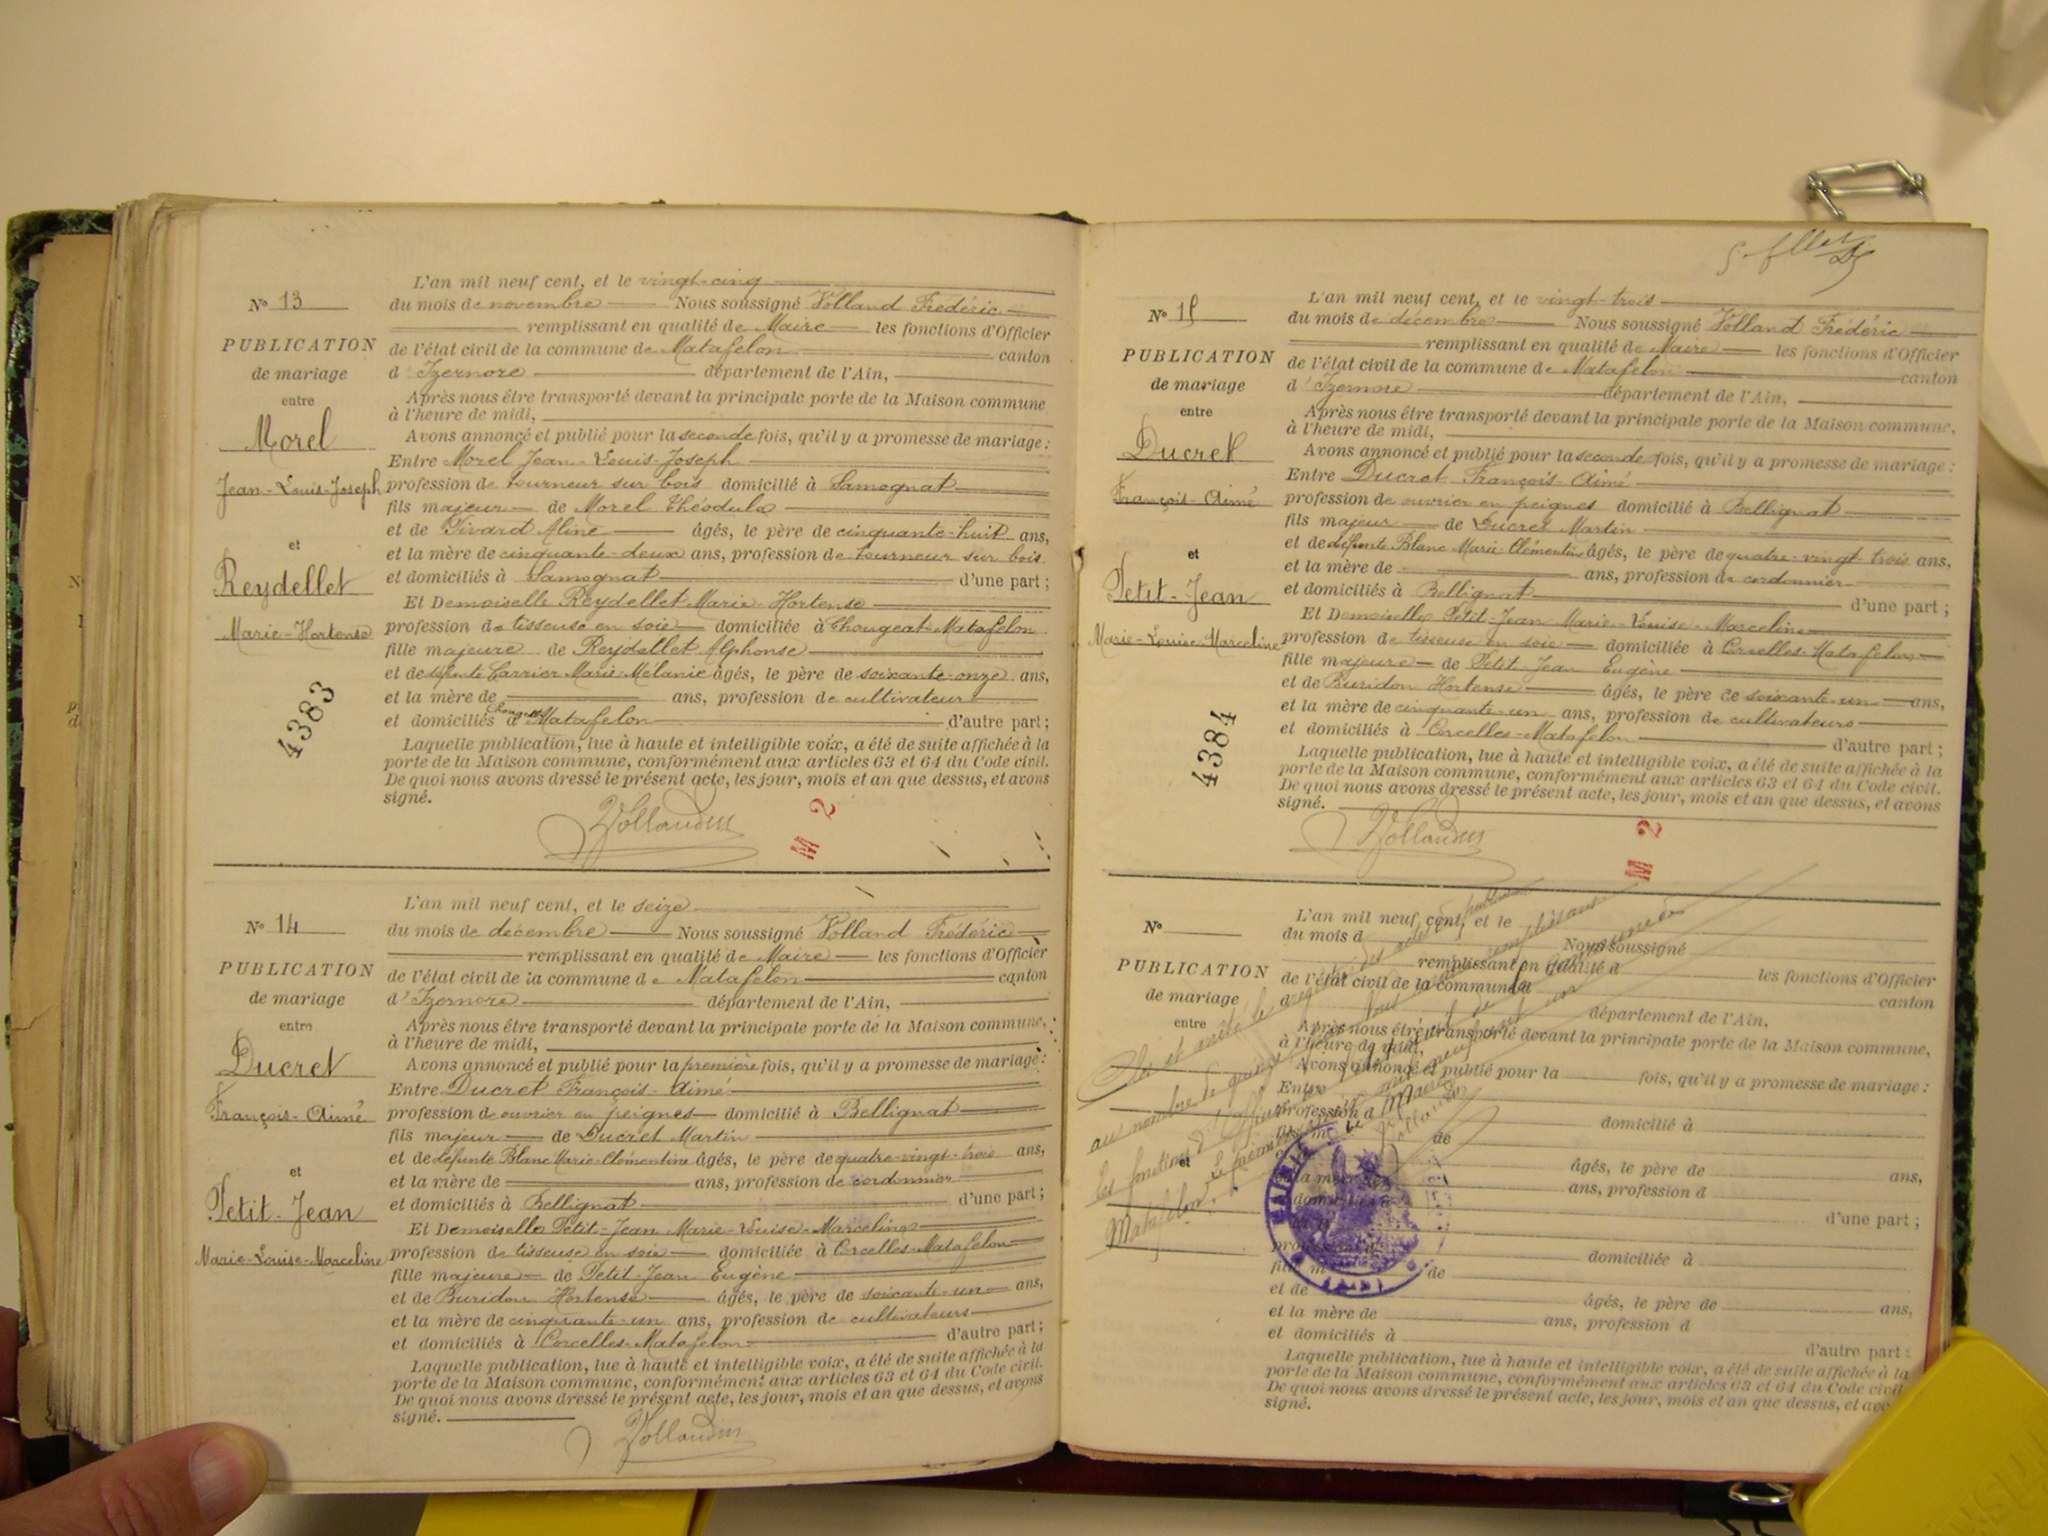 N° 13
PUBLICATION
de mariage
entre
Morel
Jean-Louis-Joseph
et
Reydellet
Marie-Hortense
4383
L'an mil neuf cent, et le vingt-cinq
du mois de novembre Nous soussigné Volland Frédéric
remplissant en qualité de Maire les fonctions d'Officier
de l'état civil de la commune de Matafelon canton
d'Izernore département de l'Ain,
Après nous être transporté devant la principale porte de la Maison commune
à l'heure de midi,
Avons annoncé et publié pour la seconde fois, qu'il y a promesse de mariage :
Entre Morel Jean-Louis-Joseph
profession de tourneur sur bois domicilié à Samognat
fils majeur de Morel Théodule
et de Tivard Aline âgés, le père de cinquante-huit ans,
et la mère de cinquante-deux ans, profession de tourneur sur bois
et domiciliés à Samognat d'une part ;
Et Demoiselle Reydellet Marie-Hortense
profession de tisseuse en soie domiciliée à Chougeat-Matafelon
fille majeure de Reydellet Alphonse
et de défunte Carrier Marie-Mélanie âgés, le père de soixante-onze ans,
et la mère de ans, profession de cultivateur
et domiciliés à Chougeat-Matafelon d'autre part ;
Laquelle publication, lue à haute et intelligible voix, a été de suite affichée à la
porte de la Maison commune, conformément aux articles 63 et 64 du Code civil.
De quoi nous avons dressé le présent acte, les jour, mois et an que dessus, et avons
signé.
Vollandm
M 2
N° 14
PUBLICATION
de mariage
entre
Ducret
François-Aimé
et
Petit-Jean
Marie-Louise-Marceline
L'an mil neuf cent, et le seize
du mois de décembre Nous soussigné Volland Frédéric
remplissant en qualité de Maire les fonctions d'Officier
de l'état civil de la commune de Matafelon canton
d'Izernore département de l'Ain,
Après nous être transporté devant la principale porte de la Maison commune,
à l'heure de midi,
Avons annoncé et publié pour la première fois, qu'il y a promesse de mariage :
Entre Ducret François-Aimé
profession de ouvrier en peignes domicilié à Bellignat
fils majeur de Ducret Martin
et de défunte Blanc Marie-Clémentine âgés, le père de quatre-vingt-trois ans,
et la mère de ans, profession de cordonnier
et domiciliés à Bellignat d'une part ;
Et Demoiselle Petit-Jean Marie-Louise-Marceline
profession de tisseuse en soie domiciliée à Corcelles-Matafelon
fille majeure de Petit-Jean Eugène
et de Buridon Hortense âgés, le père de soixante-un ans,
et la mère de cinquante-un ans, profession de cultivateurs
et domiciliés à Corcelles-Matafelon d'autre part ;
Laquelle publication, lue à haute et intelligible voix, a été de suite affichée à la
porte de la Maison commune, conformément aux articles 63 et 64 du Code civil.
De quoi nous avons dressé le présent acte, les jour, mois et an que dessus, et avons
signé.
Vollandm
N° 15
PUBLICATION
de mariage
entre
Ducret
François-Aimé
et
Petit-Jean
Marie-Louise-Marceline
4384
L'an mil neuf cent, et le vingt-trois
du mois de décembre Nous soussigné Volland Frédéric
remplissant en qualité de Maire les fonctions d'Officier
de l'état civil de la commune de Matafelon canton
d'Izernore département de l'Ain,
Après nous être transporté devant la principale porte de la Maison commune,
à l'heure de midi,
Avons annoncé et publié pour la seconde fois, qu'il y a promesse de mariage :
Entre Ducret François-Aimé
profession de ouvrier en peignes domicilié à Bellignat
fils majeur de Ducret Martin
et de défunte Blanc Marie-Clémentine âgés, le père de quatre-vingt trois ans,
et la mère de ans, profession de cordonnier
et domiciliés à Bellignat d'une part ;
Et Demoiselle Petit-Jean Marie-Louise-Marceline
profession de tisseuse en soie domiciliée à Corcelles-Matafelon
fille majeure de Petit-Jean Eugène
et de Buridon Hortense âgés, le père de soixante-un ans,
et la mère de cinquante-un ans, profession de cultivateurs
et domiciliés à Corcelles-Matafelon d'autre part ;
Laquelle publication, lue à haute et intelligible voix, a été de suite affichée à la
porte de la Maison commune, conformément aux articles 63 et 64 du Code civil.
De quoi nous avons dressé le présent acte, les jour, mois et an que dessus, et avons
signé.
Vollandm
M 2
N°
PUBLICATION
de mariage
entre
et
L'an mil neuf cent, et le
du mois d Nous soussigné
remplissant en qualité d les fonctions d'Officier
de l'état civil de la commune d canton
d département de l'Ain,
Après nous être transporté devant la principale porte de la Maison commune,
à l'heure de midi,
Avons annoncé et publié pour la fois, qu'il y a promesse de mariage :
Entre
profession d domicilié à
fils m de
âgés, le père de ans,
et la mère de ans, profession d
d'une part ;
profession d domiciliée à
fille m de
et de âgés, le père de ans,
et la mère de ans, profession d
et domiciliés à d'autre part :
Laquelle publication, lue à haute et intelligible voix, a été de suite affichée à la
porte de la Maison commune, conformément aux articles 63 et 64 du Code civil
De quoi nous avons dressé le présent acte, les jour, mois et an que dessus, et avo
signé.
Clos et arrêté le registre des actes de publications
au nombre de quinze
les fonctions d'officier
Matafelon, le premier
le Maire
Vollandm
MAIRIE
(AIN)